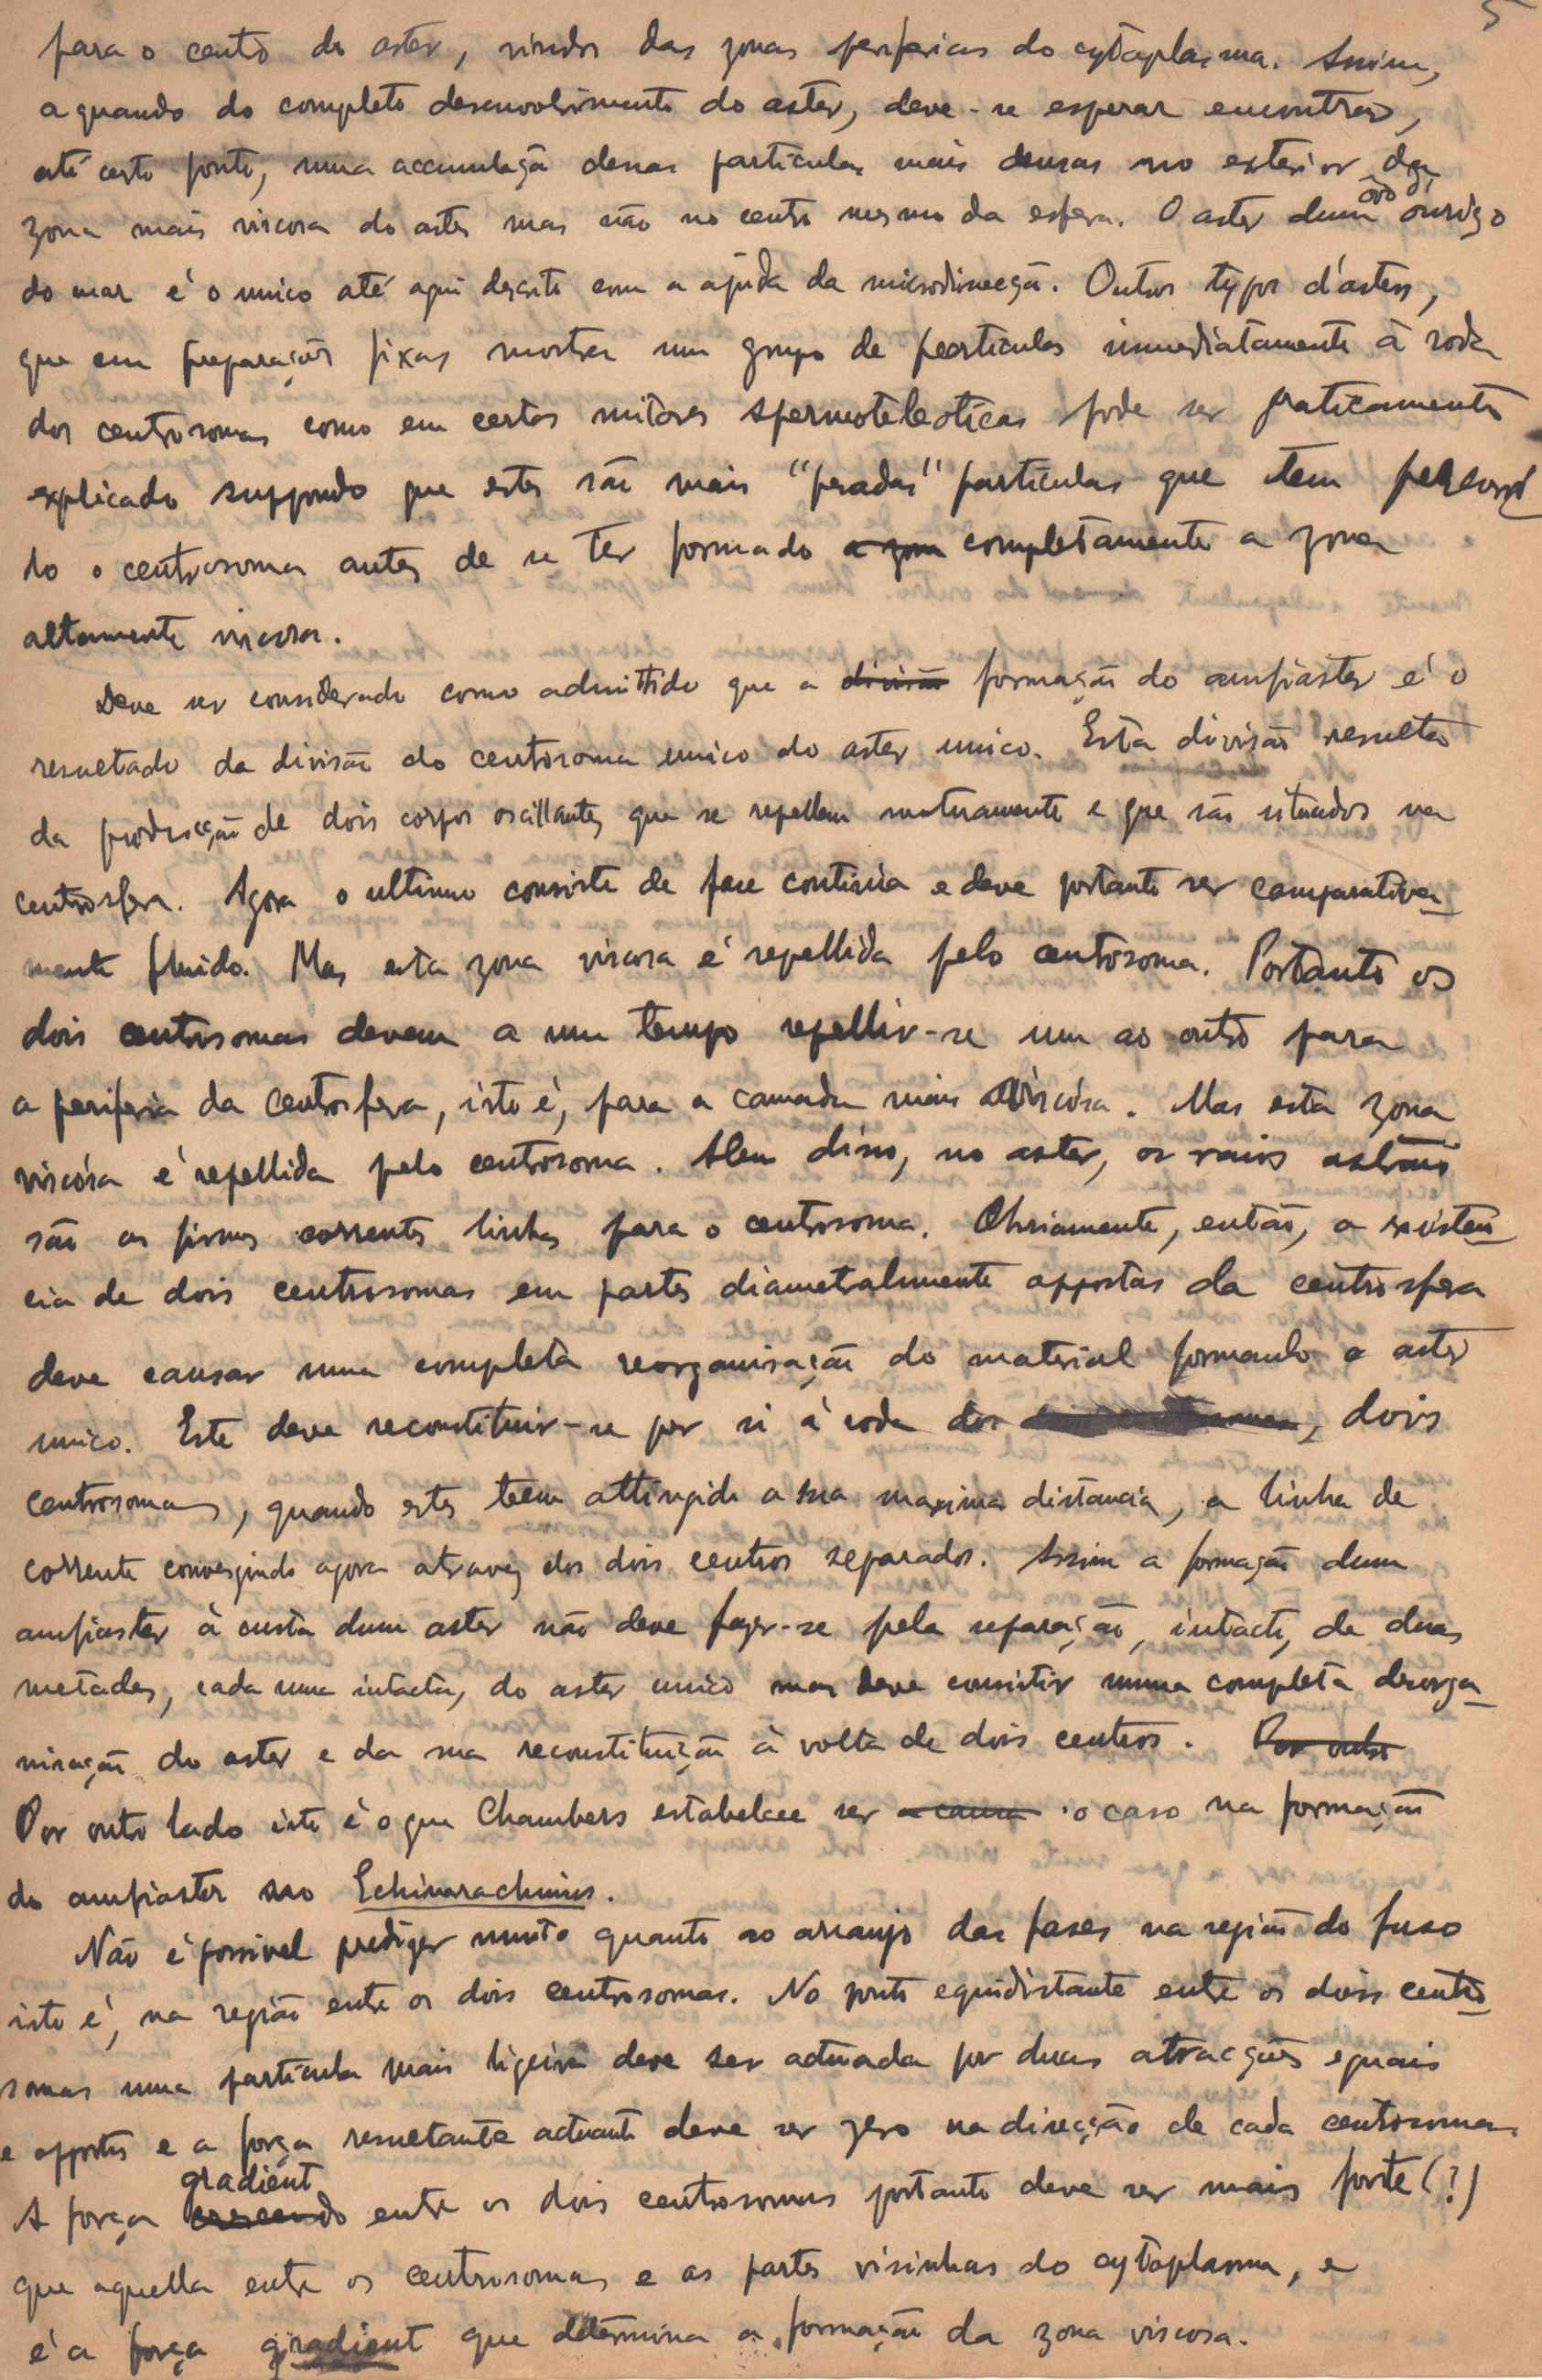 5
para o centro do aster, vindos das zonas perifericas do cytoplasma. Assim,
aquando do completo desenvolvimento do aster, deve-se esperar encontrar,
até certo ponto, uma accumulação dessas particulas mais densas no exterior da
zona mais viscosa do aster mas não no centro mesmo da esfera. O aster dum ovo d'ouriço
do mar é o unico até aqui descrito com a ajuda da microdissecção. Outros typos d'asters,
que em preparações fixas mostra um grupo de particulas immediatamente à roda
dos centrosomas como em certas mitoses spermoteleoticas pode ser praticamente
explicado suppondo que estes são mais "pesadas" particulas que tem
do o centrosoma antes de se ter formado a zona completamente a zona
altamente viscosa.
Deve ser considerado como admittido que a divisão formação do amfiaster é o
resultado da divisão do centrosoma unico do aster unico. Esta divisão resulta
da producção de dois corpos oscillantes que se repellem mutuamente e que são situados na
centrosfera. Agora o ultimo consiste de fase continua e deve portanto ser comparativa-
mente fluido. Mas esta zona viscosa é repellida pelo centrosoma. Portanto os
dois centrosomas devem a um tempo repellir-se um ao outro para
a periferia da centrosfera, isto é, para a camada mais viscósa. Mas esta zona
viscósa é repellida pelo centrosoma. Alem disso, no aster, os raios astraes
são as firmes correntes linhas para o centrosoma. Obviamente, então, a existen-
cia de dois centrosomas em partes diametralmente oppostas da centrosfera
deve causar uma completa reorganisação do material formando o aster
unico. Este deve reconstituir-se por si à roda dos, dois
centrosomas, quando estes teem attingido a sua maxima distancia, a linha de
corrente convergindo agora atravez dos dois centros separados. Assim a formação dum
amfiaster à custa dum aster não deve fazer-se pela separação, intacta, de duas
metades, cada uma intacta, do aster unico mas deve consistir numa completa desorga-
nisação do aster e da sua reconstituição à volta de dois centros. Por outro
Por outro lado isto é o que Chambers estabelece ser a causa o caso na formação
do amfiaster no Echinarachnius.
Não é possivel predizer muito quanto ao arranjo das fases na região do fuso
isto é, na região entre os dois centrosomas. No ponto equidistante entre os dois centro-
somas uma particula mais ligeira deve ser actuada por duas atracções eguais
e oppostas e a força resultante actuante deve ser zero na direcção de cada centrosoma.
A força crescendo gradient entre os dois centrosomas portanto deve ser mais forte (?)
que aquella entre os centrosomas e as partes visinhas do cytoplasma, e
é a força gradient que determina a formação da zona viscosa.